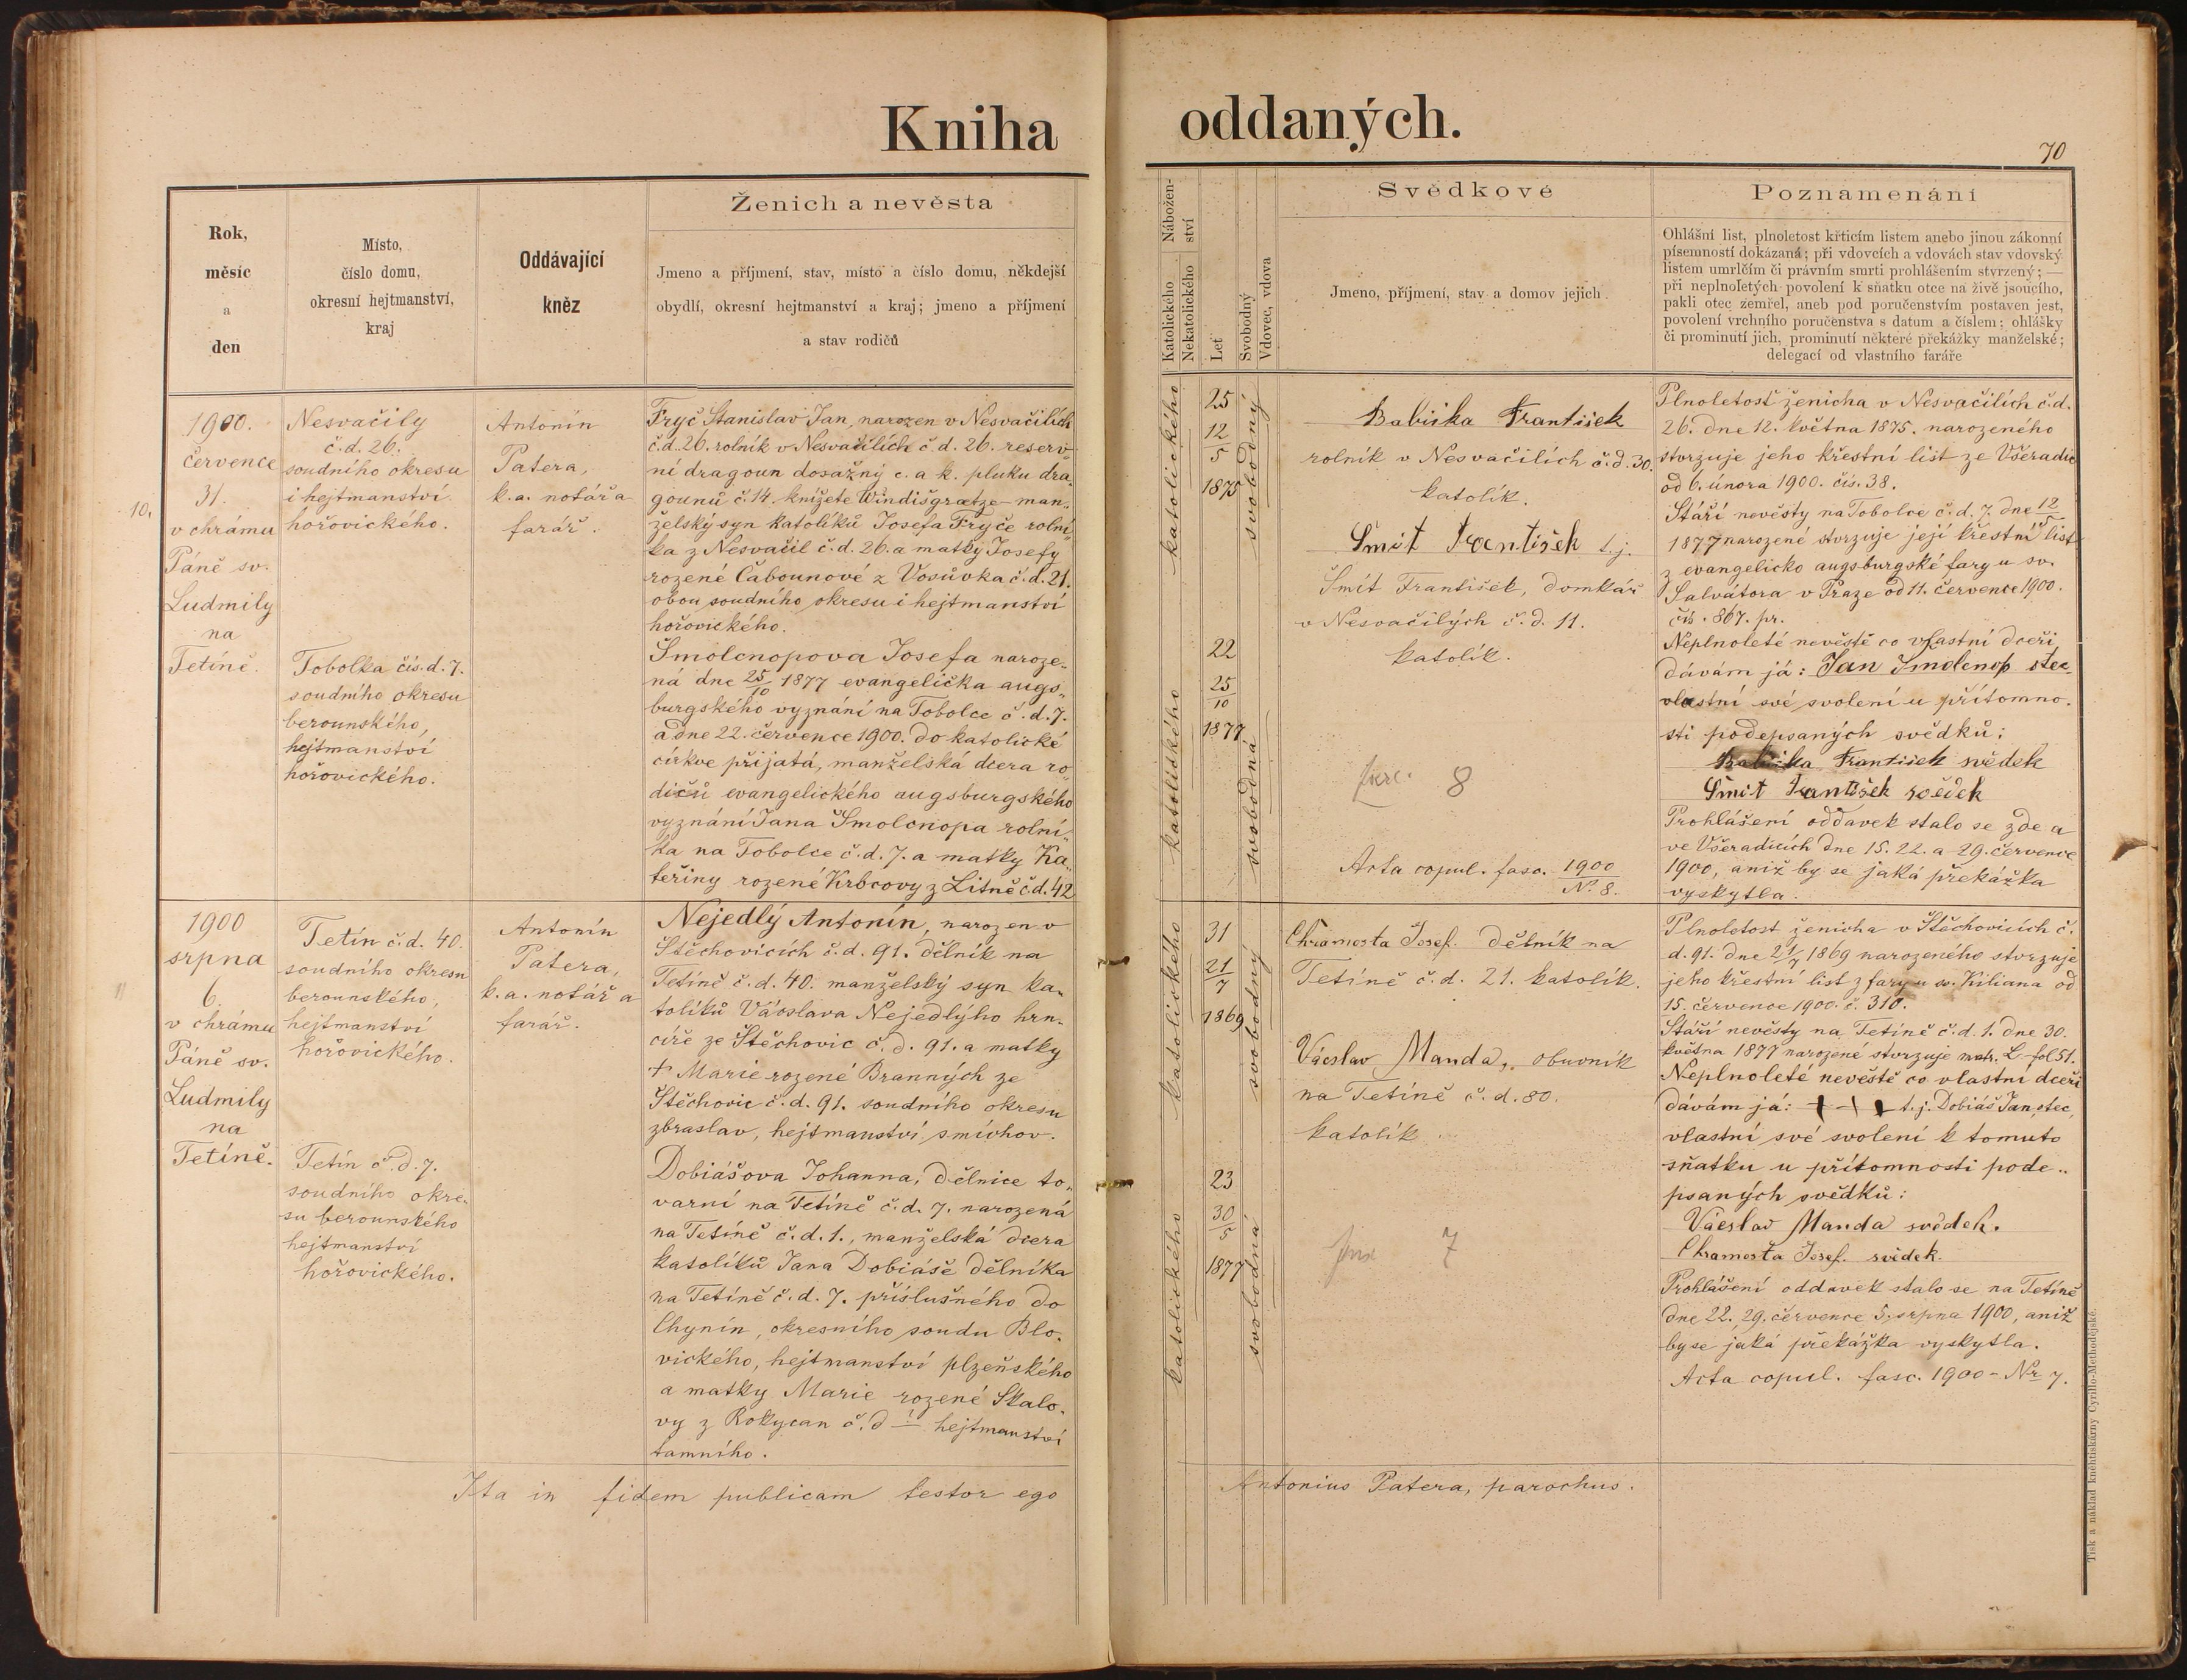 Kniha oddaných.
70
Rok,
měsíc
a
den
Místo,
číslo domu,
okresní hejtmanství,
kraj
Oddávající
kněz
Ženich a nevěsta
Jmeno a příjmení, stav, místo a číslo domu, někdejší
obydlí, okresní hejtmanství a kraj; jmeno a příjmení
a stav rodičů
Nábožen-
ství
Katolického
Nekatolického
Let
Svobodný
Vdovec, vdova
Svědkové
Jmeno, příjmení, stav a domov jejich
Poznamenání
Ohlášní list, plnoletost křticím listem anebo jinou zákonní
písemností dokázaná; při vdovcích a vdovách stav vdovský
listem umrlčím či právním smrti prohlášením stvrzený; —
při neplnoletých povolení k sňatku otce na živě jsoucího,
pakli otec zemřel, aneb pod poručenstvím postaven jest,
povolení vrchního poručenstva s datum a číslem; ohlášky
či prominutí jich, prominutí některé překážky manželské;
delegací od vlastního faráře
10.
1900.
července
31.
v chrámu
Páně sv.
Ludmily
na
Tetíně.
Nesvačily
č.d. 26.
soudního okresu
i hejtmanství
hořovického.
Tobolka čís. d. 7.
soudního okresu
berounského,
hejtmanství
hořovického.
Antonín
Patera,
k.a. notář a
farář.
Fryč Stanislav Jan, narozen v Nesvačilích
č.d. 26. rolník v Nesvačilích č.d. 26. reserv-
ní dragoun dosažný c. a k. pluku dra-
gounů č. 14. knížete Windišgraetze – man-
želský syn katolíků Josefa Fryče rolní-
ka z Nesvačil č.d. 26. a matky Josefy
rozené Čabounové z Vosůvka č.d. 21.
obou soudního okresu i hejtmanství
hořovického.
Šmolcnopova Josefa naroze-
ná dne 25/10 1877 evangelička augs-
burgského vyznání na Tobolce č.d. 7.
a dne 22. července 1900. do katolické
církve přijatá, manželská dcera ro-
dičů evangelického augsburgského
vyznání Jana Šmolcnopa rolní-
ka na Tobolce č.d. 7. a matky Ka-
teřiny rozené Krbcovy z Litně č.d. 42
katolického
25
12/5
1875
svobodný
katolického
22
25/10
1877
svobodná
Babička František
rolník v Nesvačilích č.d. 30.
katolík.
Šmit František t.j.
Šmít František, domkář
v Nesvačilých č.d. 11.
katolík.
fasc. 8
Acta copul. fasc. 1900/No. 8.
Plnoletost ženicha v Nesvačilích č.d.
26. dne 12. května 1875. narozeného
stvrzuje jeho křestní list ze Všeradic
od 6. února 1900. čís. 38.
Stáří nevěsty na Tobolce č.d. 7. dne 12/5
1877 narozené stvrzuje její křestní list
z evangelicko augsburgské fary u sv.
Salvátora v Praze od 11. července 1900.
čís. 867. pr.
Neplnoleté nevěstě co vlastní dceři
dávám já: Jan Šmolcnop otec
vlastní své svolení u přítomno-
sti podepsaných svědků:
Babička František svědek
Šmit František svědek
Prohlášení oddavek stalo se zde a
ve Všeradicích dne 15. 22. a 29. července
1900, aniž by se jaká překážka
vyskytla.
11
1900
srpna
6.
v chrámu
Páně sv.
Ludmily
na
Tetíně.
Tetín č.d. 40.
soudního okresu
berounského,
hejtmanství
hořovického.
Tetín č.d. 7.
soudního okre-
su berounského
hejtmanství
hořovického.
Antonín
Patera,
k.a. notář a
farář.
Nejedlý Antonín, narozen v
Štěchovicích č.d. 91. dělník na
Tetíně č.d. 40. manželský syn ka-
tolíků Václava Nejedlýho hrn-
číře ze Štěchovic č.d. 91. a matky
† Marie rozené Branných ze
Štěchovic č.d. 91. soudního okresu
zbraslav, hejtmanství smíchov.
Dobiášova Johanna, dělnice to-
varní na Tetíně č.d. 7. narozená
na Tetíně č.d. 1., manželská dcera
katolíků Jana Dobiáše dělníka
na Tetíně č.d. 7. příslušného do
Chynín, okresního soudu Blo-
vického, hejtmanství plzeňského
a matky Marie rozené Skalo-
vy z Rokycan č.d. ? hejtmanství
tamního.
katolického
31
21/7
1869
svobodný
katolického
23
30/5
1877
svobodná
Chramosta Josef. dělník na
Tetíně č.d. 21. katolík.
Václav Manda, obuvník
na Tetíně č.d. 80.
katolík.
7
Plnoletost ženicha v Štěchovicích č.
d. 91. dne 21/7 1869 narozeného stvrzuje
jeho křestní list z fary u sv. Kiliana od
15. července 1900. č. 310.
Stáří nevěsty na Tetíně č.d. 1. dne 30.
května 1877 narozené stvrzuje matr. L fol 51.
Neplnoleté nevěstě co vlastní dceři
dávám já: + + + t.j. Dobiáš Jan, otec,
vlastní své svolení k tomuto
sňatku u přítomnosti pode-
psaných svědků:
Václav Manda svědek.
Chramosta Josef. svědek.
Prohlášení oddavek stalo se na Tetíně
dne 22., 29. července 5. srpna 1900, aniž
by se jaká překážka vyskytla.
Acta copul. fasc. 1900 – Nr 7.
Ita in fidem publicam testor ego Antonius Patera, parochus.
Tisk a náklad knihtiskárny Cyrillo-Methodějské.